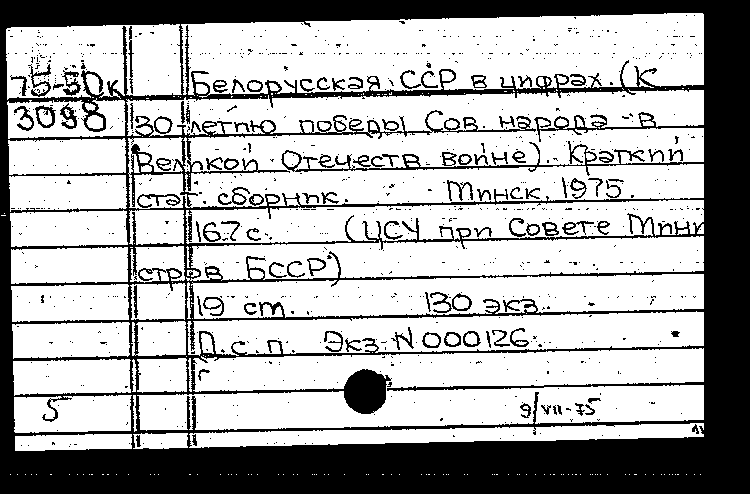 75-50к Белорусская ССР в цифрах. (К
3098 30-летию победы Сов. народа в
Великой Отечеств. войне). Краткий
стат. сборник. Минск, 1975.
167 с. (ЦСУ при Совете Мини
стров БССР)
19 cm. 130 экз.
Д.с.п. Экз. N 000126.
5 9/VII-75